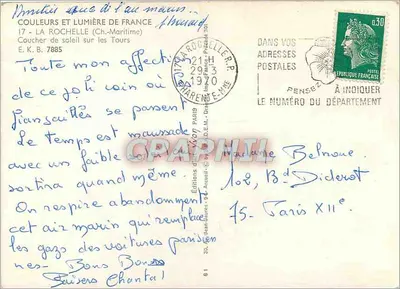 COULEURS ET LUMIÈRE DE FRANCE
17 - LA ROCHELLE (Ch.-Maritime)
Coucher de soleil sur les Tours
E. K. B. 7885
Toute mon affection
de ce joli coin où
fiançailles se passent
Le temps est maussade
avec un faible soleil
sortira quand même.
On respire abondamment
cet air marin qui remplace
les gaz des voitures parisien
nes- Bons Bons
Baisers Chantal
17 LA ROCHELLE R.P.
21 H
29-3
1970
CHARENTE-Mme
DANS VOS
ADRESSES
POSTALES
PENSEZ
À INDIQUER
LE NUMÉRO DU DÉPARTEMENT
0,30
POSTES
RÉPUBLIQUE FRANÇAISE
Madame Belnoue
102, Bd Diderot
75- Paris XIIe.
CPAPHIL